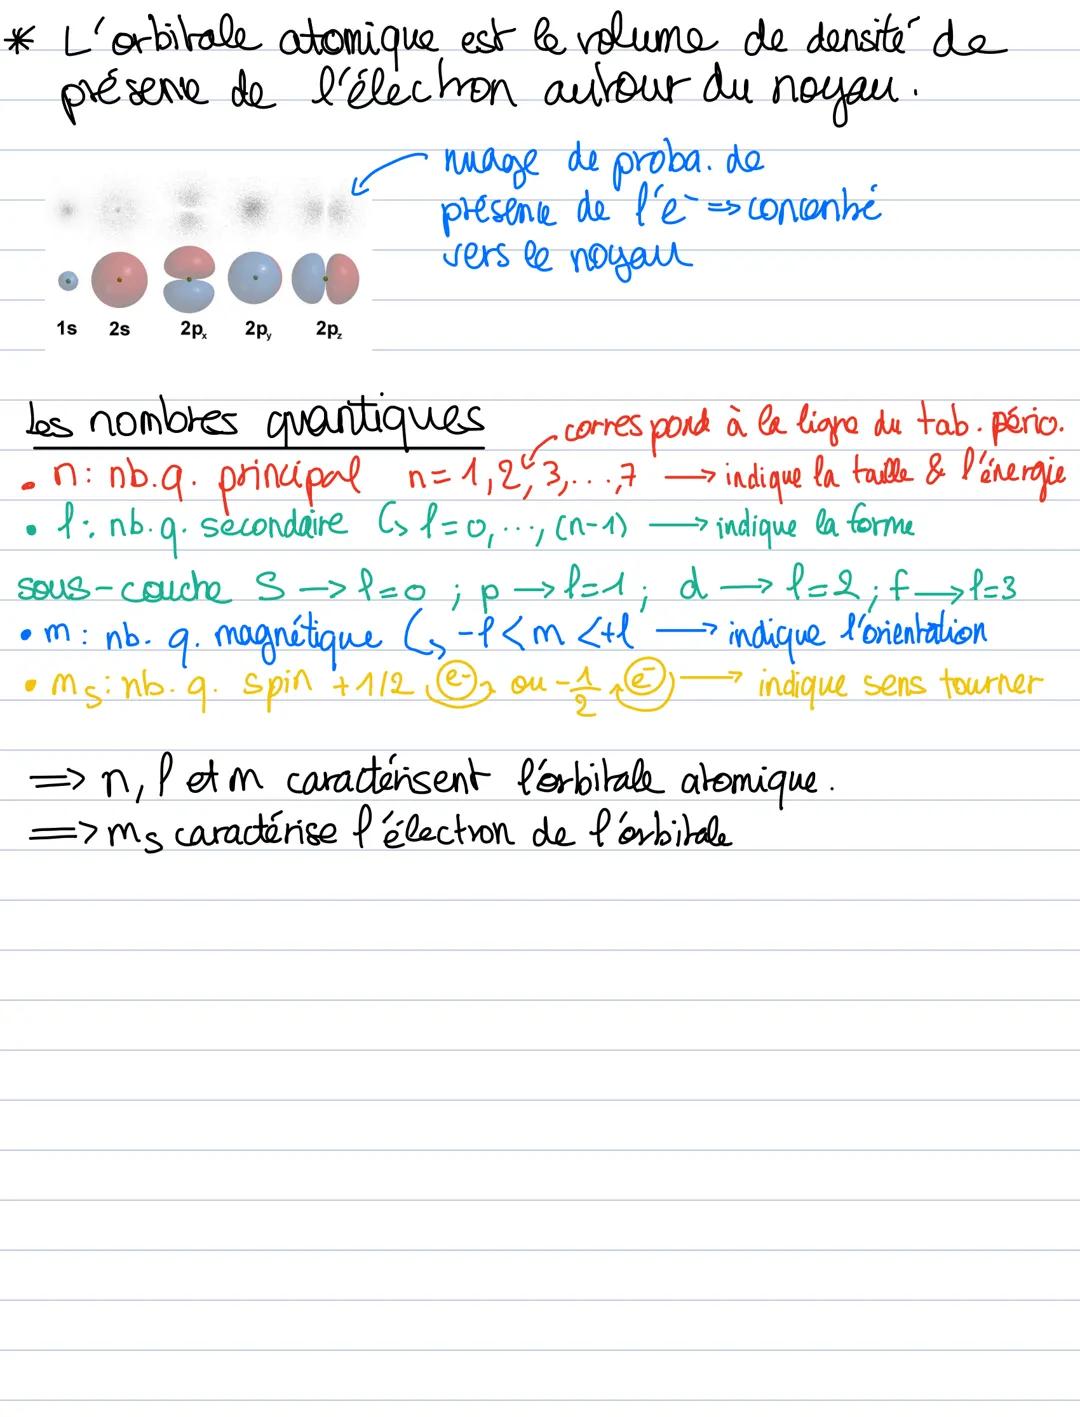 * L'orbitale atomique est le volume de densité de
présence de l'électron autour du noyau.
nuage de proba. de
présence de l'e⁻ => concentré
vers le noyau
1s 2s 2pₓ 2pᵧ 2p_z
Les nombres quantiques
correspond à la ligne du tab. pério.
• n: nb.q. principal n=1,2,3,...,7 → indique la taille & l'énergie
• l: nb.q. secondaire ↳ l=0,...,(n-1) → indique la forme
sous-couche S → l=0 ; p → l=1 ; d → l=2 ; f → l=3
• m: nb. q. magnétique ↳ -l<m<+l → indique l'orientation
• ms: nb.q. spin +1/2 e- ou -1/2 e- → indique sens tourner
=> n, l et m caractérisent l'orbitale atomique.
=> ms caractérise l'électron de l'orbitale